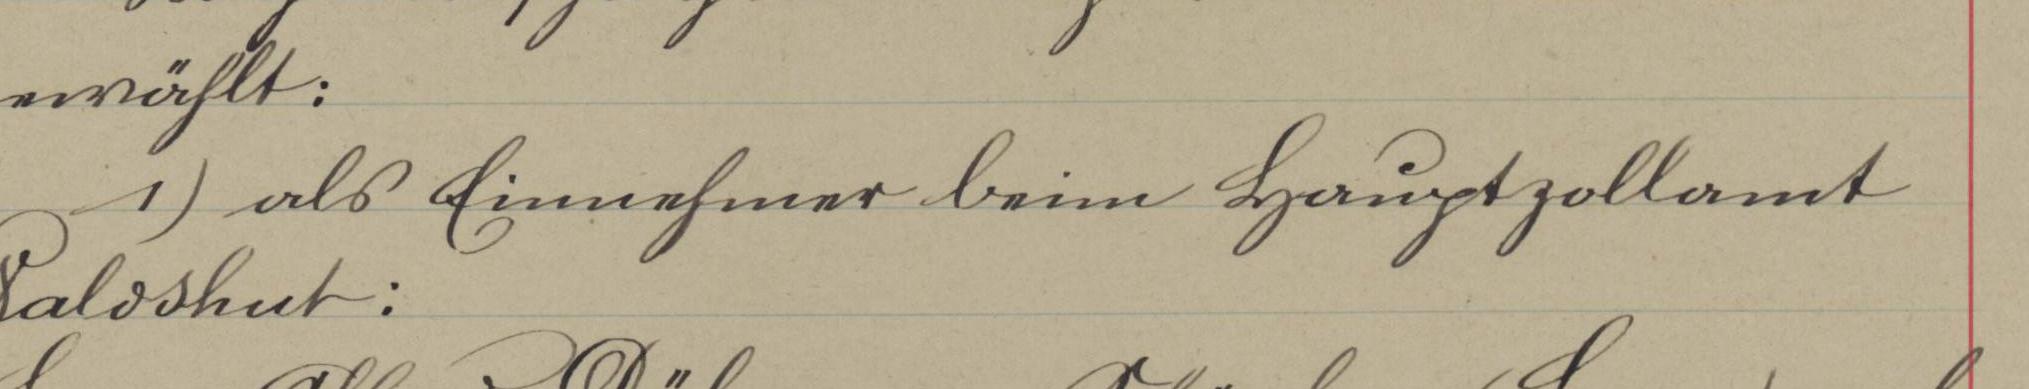 erwählt:
1) als Einnehmer beim Hauptzollamt
Waldshut: